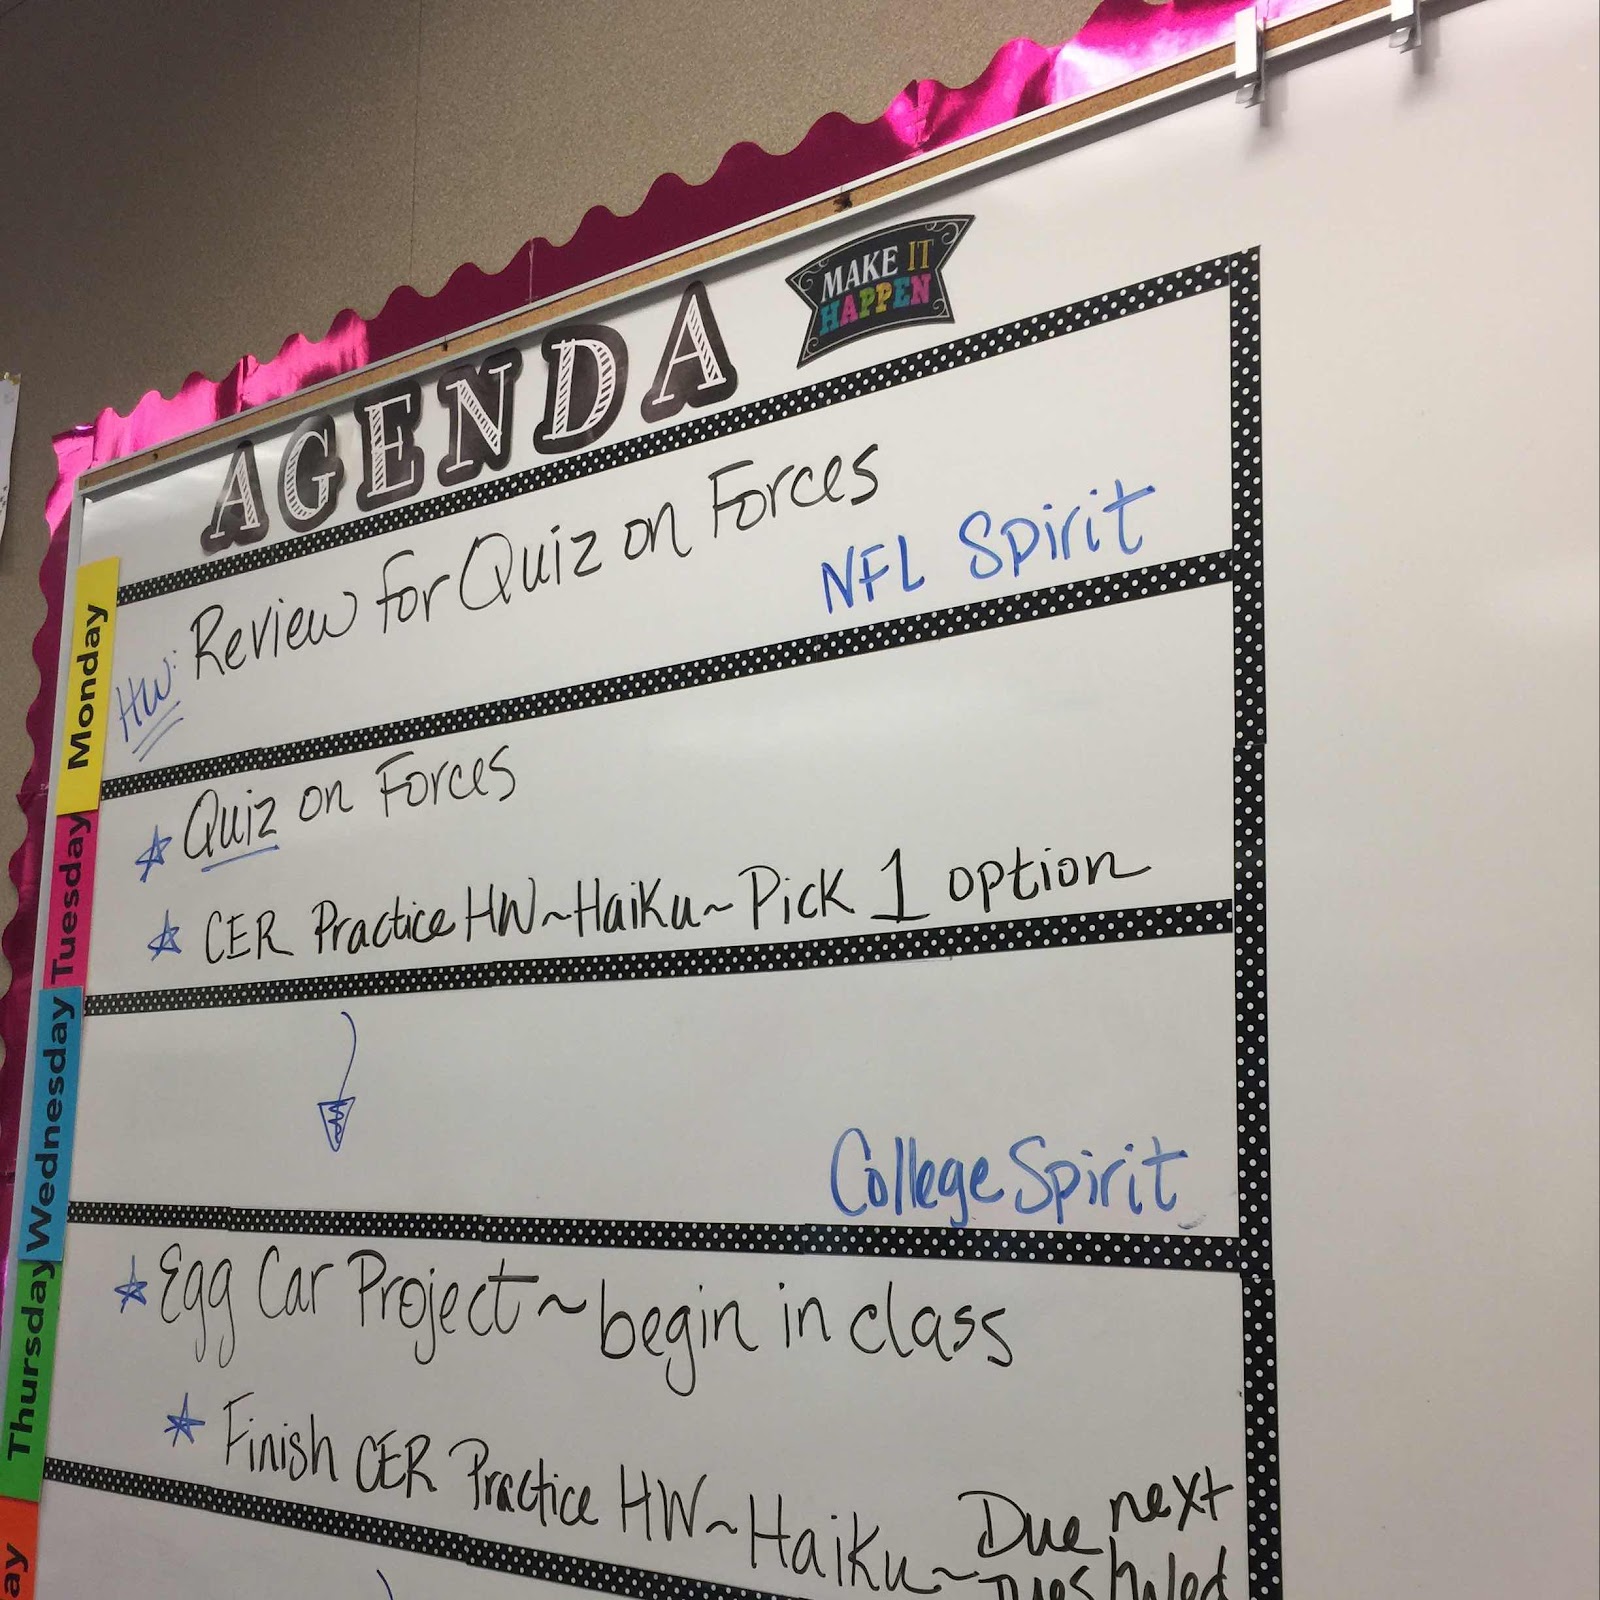 AGENDA
MAKE IT
HAPPEN
Monday
HW: Review for Quiz on Forces
NFL Spirit
Tuesday
Quiz on Forces
CER Practice HW~Haiku~Pick 1 option
Wednesday
College Spirit
Thursday
Egg Car Project~begin in class
Finish CER Practice HW~Haiku~Due next
Tues/Wed
ay